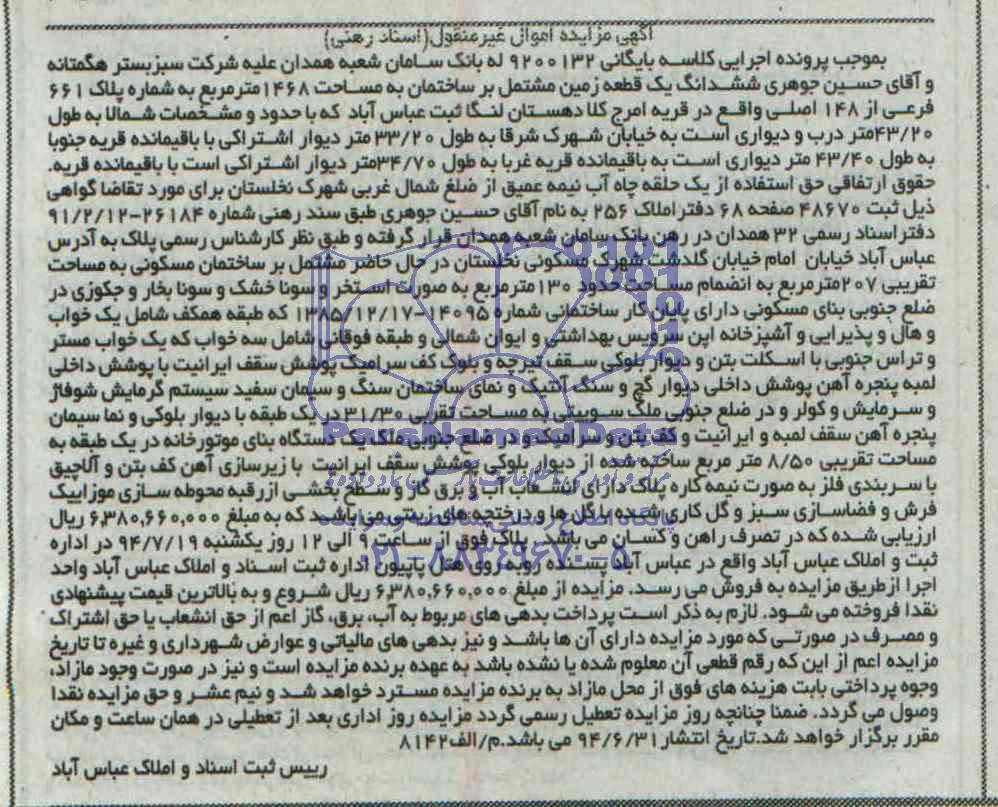 آگهی مزایده اموال غیرمنقول(اسناد رهنی)
بموجب پرونده اجرایی کلاسه بایگانی ۹۲۰۰۱۳۲ له بانک سامان شعبه همدان علیه شرکت سبزبستر هگمتانه
و آقای حسین جوهری ششدانگ یک قطعه زمین مشتمل بر ساختمان به مساحت ۱۴۶۸مترمربع به شماره پلاک ۶۶۱
فرعی از ۱۴۸ اصلی واقع در قریه امرج کلا دهستان لنگا ثبت عباس آباد که با حدود و مشخصات شمالا به طول
۴۳/۲۰متر درب و دیواری است به خیابان شهرک شرقا به طول ۳۳/۲۰ متر دیوار اشتراکی با باقیمانده قریه جنوبا
به طول ۴۳/۴۰ متر دیواری است به باقیمانده قریه غربا به طول ۳۴/۷۰متر دیوار اشتراکی است با باقیمانده قریه.
حقوق ارتفاقی حق استفاده از یک حلقه چاه آب نیمه عمیق از ضلع شمال غربی شهرک نخلستان برای مورد تقاضا گواهی
ذیل ثبت ۴۸۶۷۰ صفحه ۶۸ دفتر املاک ۲۵۶ به نام آقای حسین جوهری طبق سند رهنی شماره ۲۶۱۸۴-۹۱/۲/۱۲
دفتر اسناد رسمی ۳۲ همدان در رهن بانک سامان شعبه همدان قرار گرفته و طبق نظر کارشناس رسمی پلاک به آدرس
عباس آباد خیابان امام خیابان گلدشت شهرک مسکونی نخلستان در حال حاضر مشتمل بر ساختمان مسکونی به مساحت
تقریبی ۲۰۷مترمربع به انضمام مساحت حدود ۱۳۰مترمربع به صورت استخر و سونا خشک و سونا بخار و جکوزی در
ضلع جنوبی بنای مسکونی دارای پایان کار ساختمانی شماره ۱۴۰۹۵-۱۳۸۵/۱۲/۱۷ که طبقه همکف شامل یک خواب
و هال و پذیرایی و آشپزخانه اپن سرویس بهداشتی و ایوان شمالی و طبقه فوقانی شامل سه خواب که یک خواب مستر
و تراس جنوبی با اسکلت بتن و دیوار بلوکی سقف تیرچه و بلوک کف سرامیک پوشش سقف ایرانیت با پوشش داخلی
لمبه پنجره آهن پوشش داخلی دیوار گچ و سنگ آنتیک و نمای ساختمان سنگ و سیمان سفید سیستم گرمایش شوفاژ
و سرمایش و کولر و در ضلع جنوبی ملک سوییتی به مساحت تقریبی ۳۱/۳۰ در یک طبقه با دیوار بلوکی و نما سیمان
پنجره آهن سقف لمبه و ایرانیت و کف بتن و سرامیک و در ضلع جنوبی ملک یک دستگاه بنای موتورخانه در یک طبقه به
مساحت تقریبی ۸/۵۰ متر مربع ساخته شده از دیوار بلوکی پوشش سقف ایرانیت با زیرسازی آهن کف بتن و آلاچیق
با سربندی فلز به صورت نیمه کاره پلاک دارای انشعاب آب و برق گاز و سطح بخشی از رقبه محوطه سازی موزاییک
فرش و فضاسازی سبز و گل کاری شده با گل ها و درختچه های زینتی می باشد که به مبلغ ۶,۳۸۰,۶۶۰,۰۰۰ ریال
ارزیابی شده که در تصرف راهن و کسان می باشد. پلاک فوق از ساعت ۹ الی ۱۲ روز یکشنبه ۹۴/۷/۱۹ در اداره
ثبت و املاک عباس آباد واقع در عباس آباد پسنده روبه روی هتل پاپیون اداره ثبت اسناد و املاک عباس آباد واحد
اجرا ازطریق مزایده به فروش می رسد. مزایده از مبلغ ۶,۳۸۰,۶۶۰,۰۰۰ ریال شروع و به بالاترین قیمت پیشنهادی
نقدا فروخته می شود. لازم به ذکر است پرداخت بدهی های مربوط به آب، برق، گاز اعم از حق انشعاب یا حق اشتراک
و مصرف در صورتی که مورد مزایده دارای آن ها باشد و نیز بدهی های مالیاتی و عوارض شهرداری و غیره تا تاریخ
مزایده اعم از این که رقم قطعی آن معلوم شده یا نشده باشد به عهده برنده مزایده است و نیز در صورت وجود مازاد،
وجوه پرداختی بابت هزینه های فوق از محل مازاد به برنده مزایده مسترد خواهد شد و نیم عشر و حق مزایده نقدا
وصول می گردد. ضمنا چنانچه روز مزایده تعطیل رسمی گردد مزایده روز اداری بعد از تعطیلی در همان ساعت و مکان
مقرر برگزار خواهد شد.تاریخ انتشار۹۴/۶/۳۱ می باشد.م/الف۸۱۴۲
رییس ثبت اسناد و املاک عباس آباد
ParsNamadData
۰۲۱-۸۸۳۴۹۶۷۰-۵